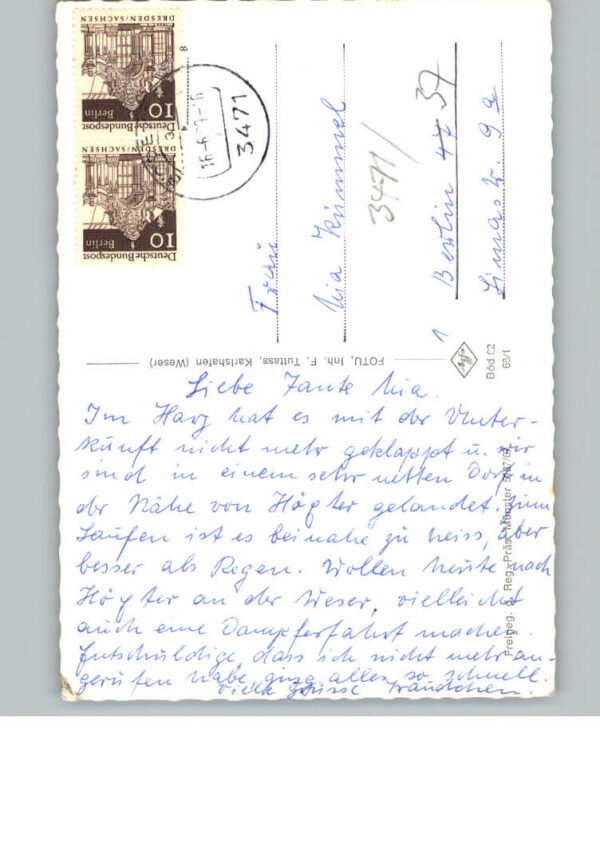 Liebe Tante Mia.
Im Harz hat es mit der Unter-
kunft nicht mehr geklappt u. wir
sind in einem sehr netten Dorf in
der Nähe von Höxter gelandet. Zum
Laufen ist es beinahe zu heiss, aber
besser als Regen. Wollen heute nach
Höxter an der Weser, vielleicht
auch eine Dampferfahrt machen.
Entschuldige, dass ich nicht mehr an-
gerufen habe, ging alles so schnell.
Viele Grüsse Traudchen.
Frau
Mia Kümmel
3471/
1 Berlin 44 37
9a
DRESDEN/SACHSEN
Deutsche Bundespost
Berlin
10
DRESDEN/SACHSEN
Deutsche Bundespost
Berlin
10
3471
FOTU, Inh. F. Tuttass, Karlshafen (Weser)
Agfa
Böd 02
68/1
Freigeg. d. Reg. Präs. Münster